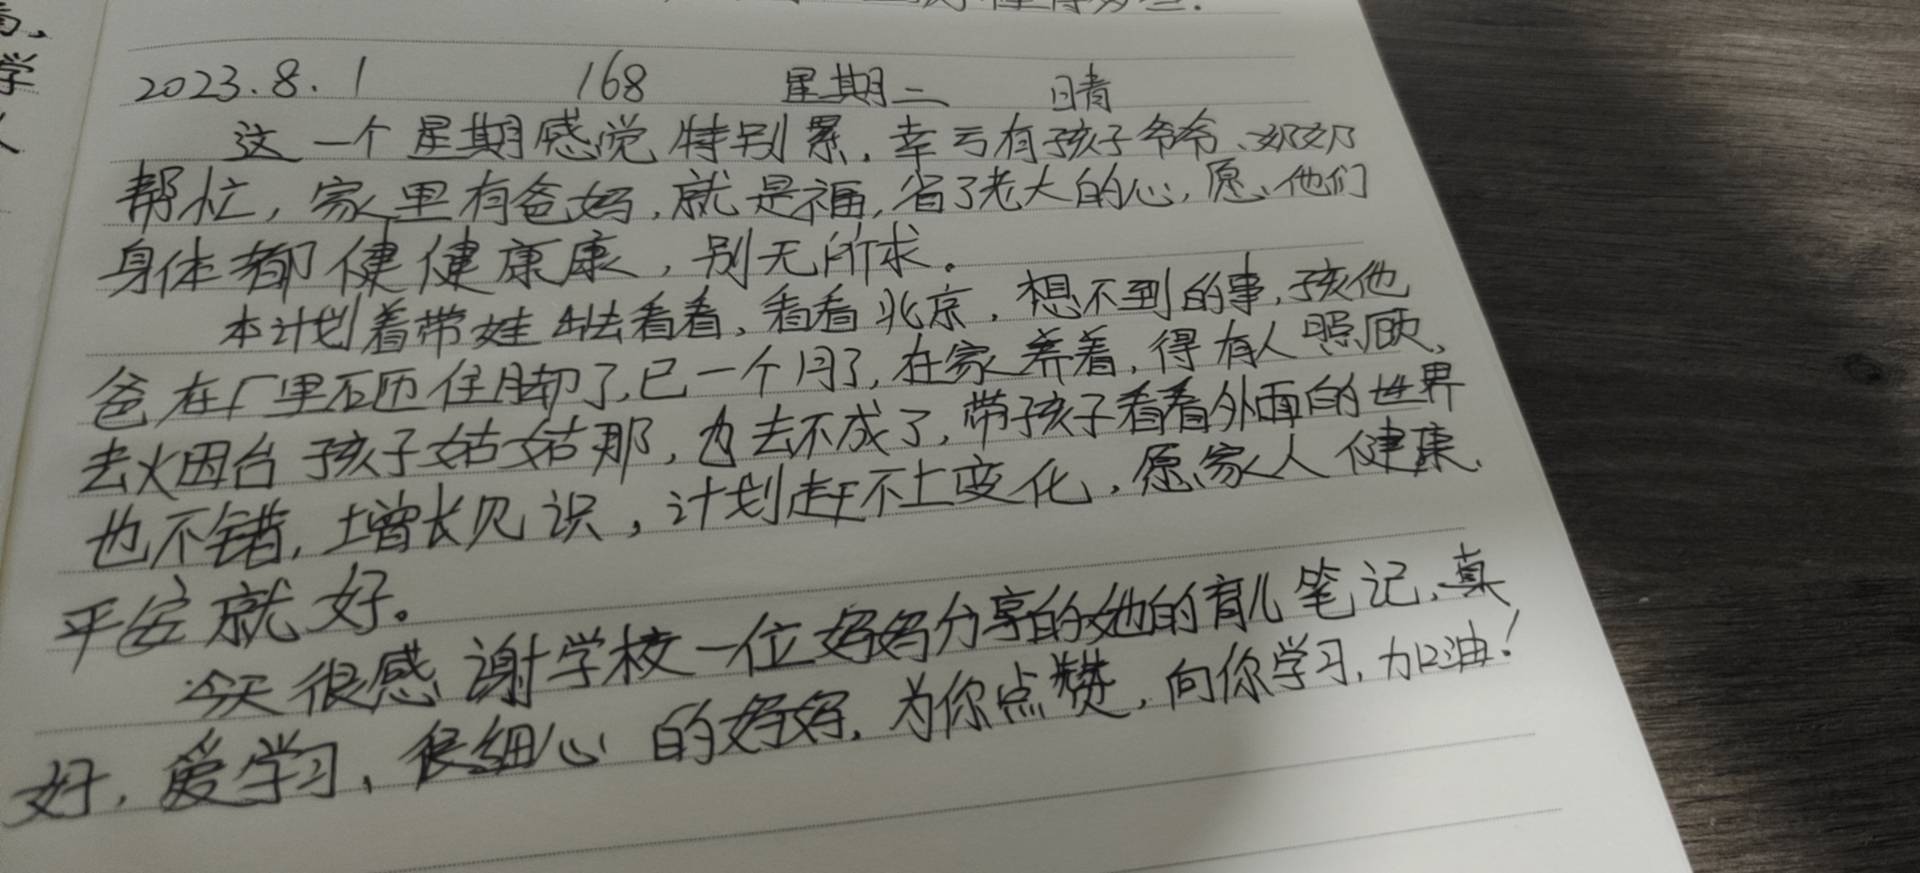 2023.8.1 168 星期二 晴
这一个星期感觉特别累,幸亏有孩子爷爷、奶奶
帮忙,家里有爸妈,就是福,省了老大的心,愿他们
身体都健健康康,别无所求。
本计划着带娃出去看看,看看北京,想不到的事,孩他
爸在厂里砸住脚了,已一个月了,在家养着,得有人照顾,
去烟台孩子姑姑那,也去不成了,带孩子看看外面的世界
也不错,增长见识,计划赶不上变化,愿家人健康、
平安就好。
今天很感谢学校一位妈妈分享的她的育儿笔记,真
好,爱学习、很细心的妈妈,为你点赞,向你学习,加油!